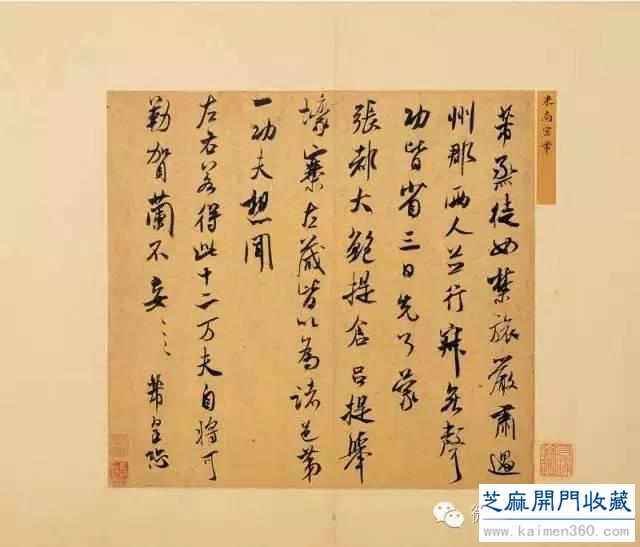 芾烝徒如禁旅嚴肅過
州郡兩人並行寂無聲
功皆省三日先了蒙
張都大鮑提倉呂提舉
壕寨左藏皆以為諸邑第
一功夫想聞
左右若得此十二万夫自將可
勒賀蘭不妄〻〻 芾皇恐
米南宮
芝麻開門收藏
www.kaimen360.com